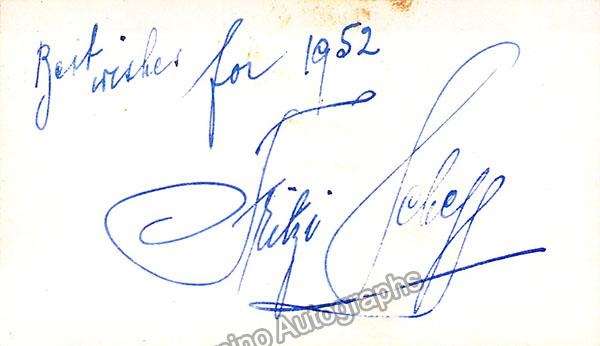 Best wishes for 1952
Fritzi Scheff
Tamino Autographs